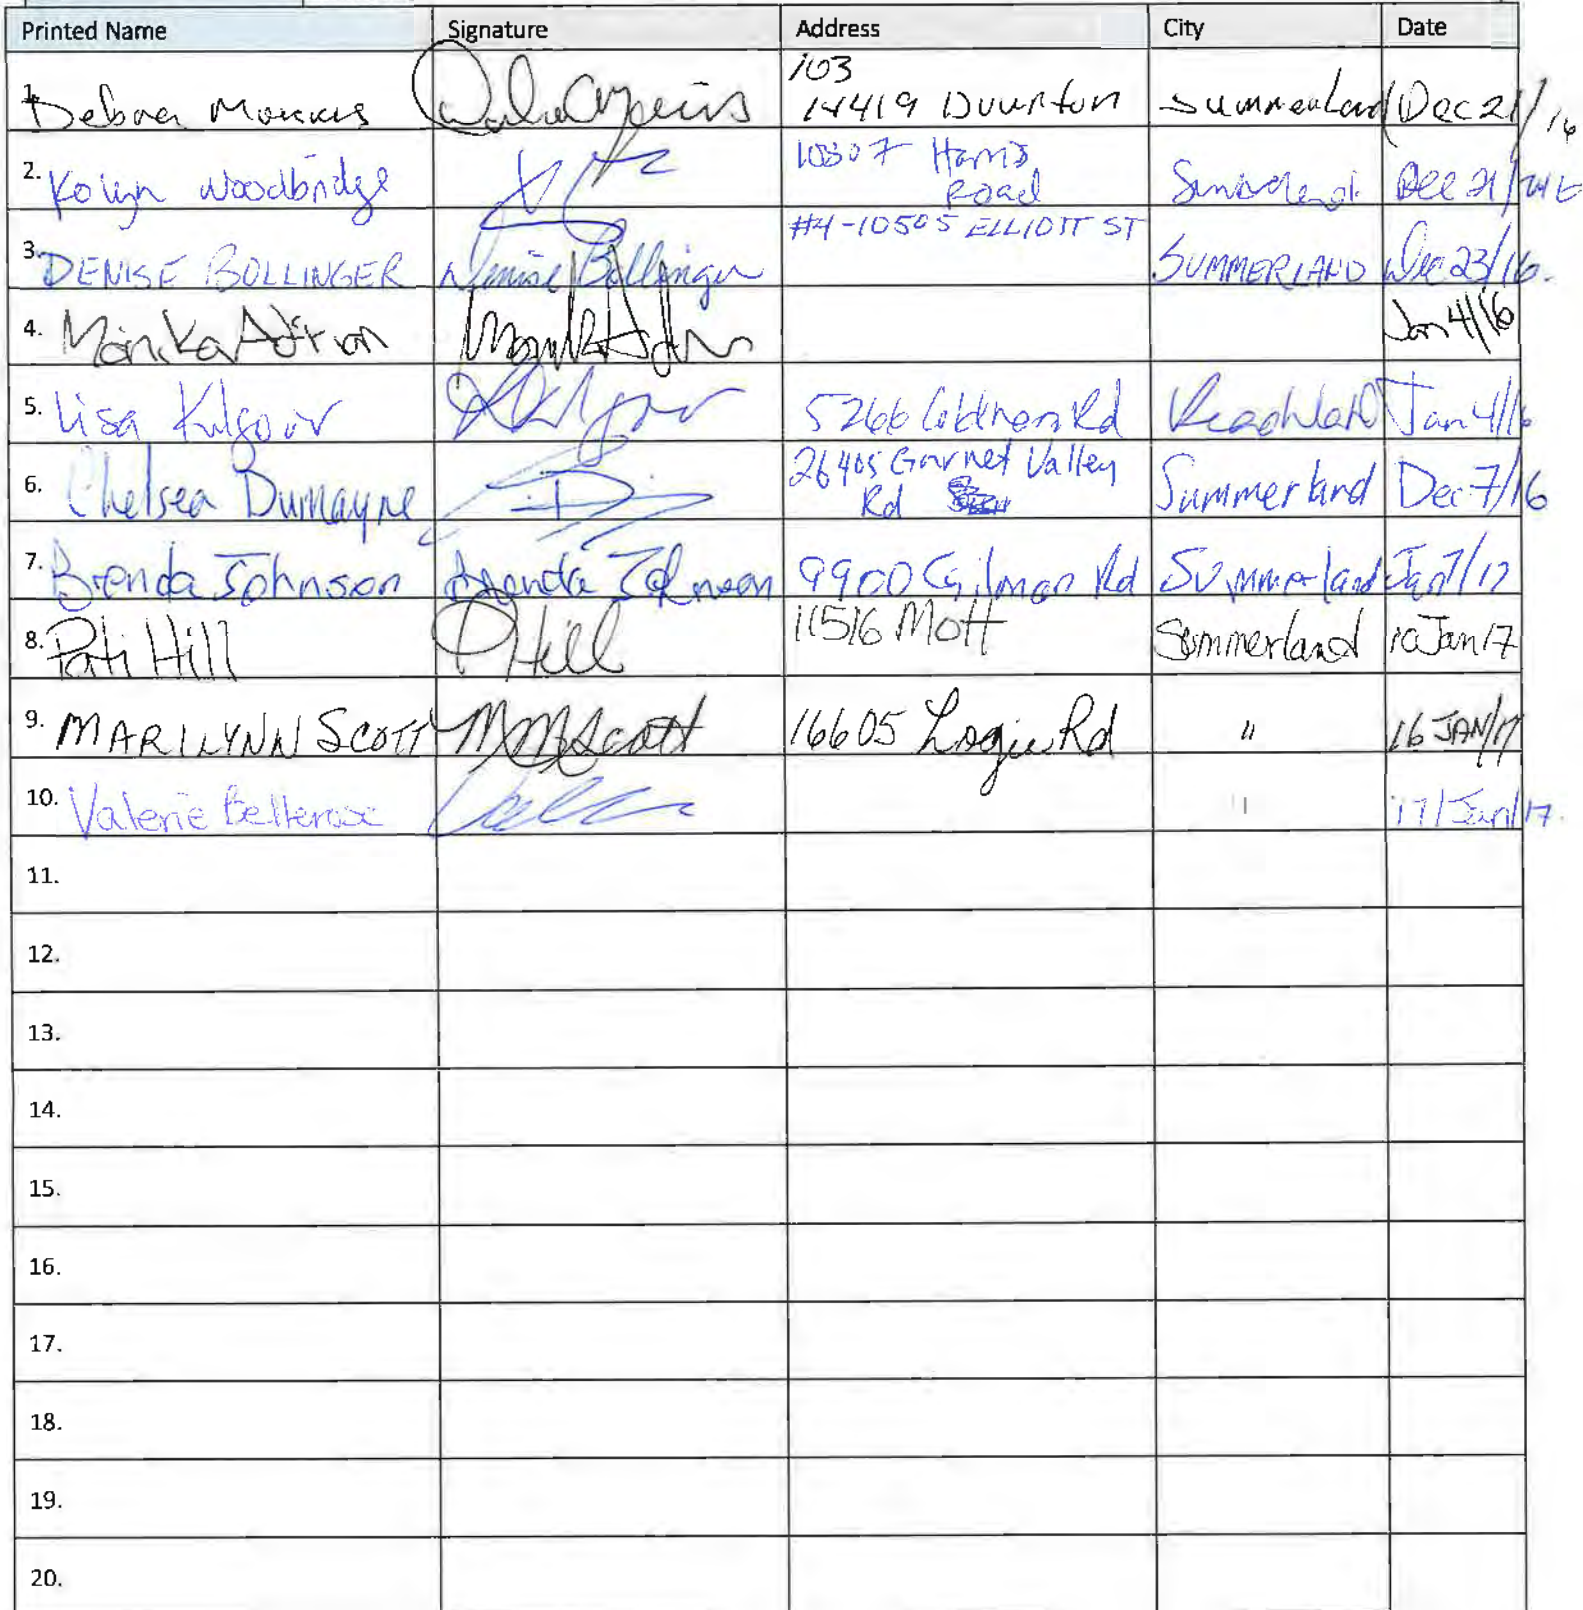 Printed Name Signature Address City Date
1. 103
14419 Summerland Dec 21/16
2. Woodbridge 10307 Harris Road Dec 21/
3. DENISE BOLLINGER Denise Bollinger #4-10505 ELLIOTT ST SUMMERLAND Dec 23/16.
4. Monika Jan 4/16
5. Lisa Kilgour 5266 Rd Peachland Jan 4/16
6. Chelsea Dumayne 26405 Garnet Valley Rd Summerland Dec 7/16
7. Brenda Johnson Brenda Johnson 9900 Gilman Rd Summerland Jan 7/17
8. Pati Hill PHill 11516 Mott Summerland 10 Jan 17
9. MARILYNN SCOTT MMScott 16605 Logie Rd " 16 JAN/17
10. Valerie Bellerose " 17/Jan/17.
11.
12.
13.
14.
15.
16.
17.
18.
19.
20.